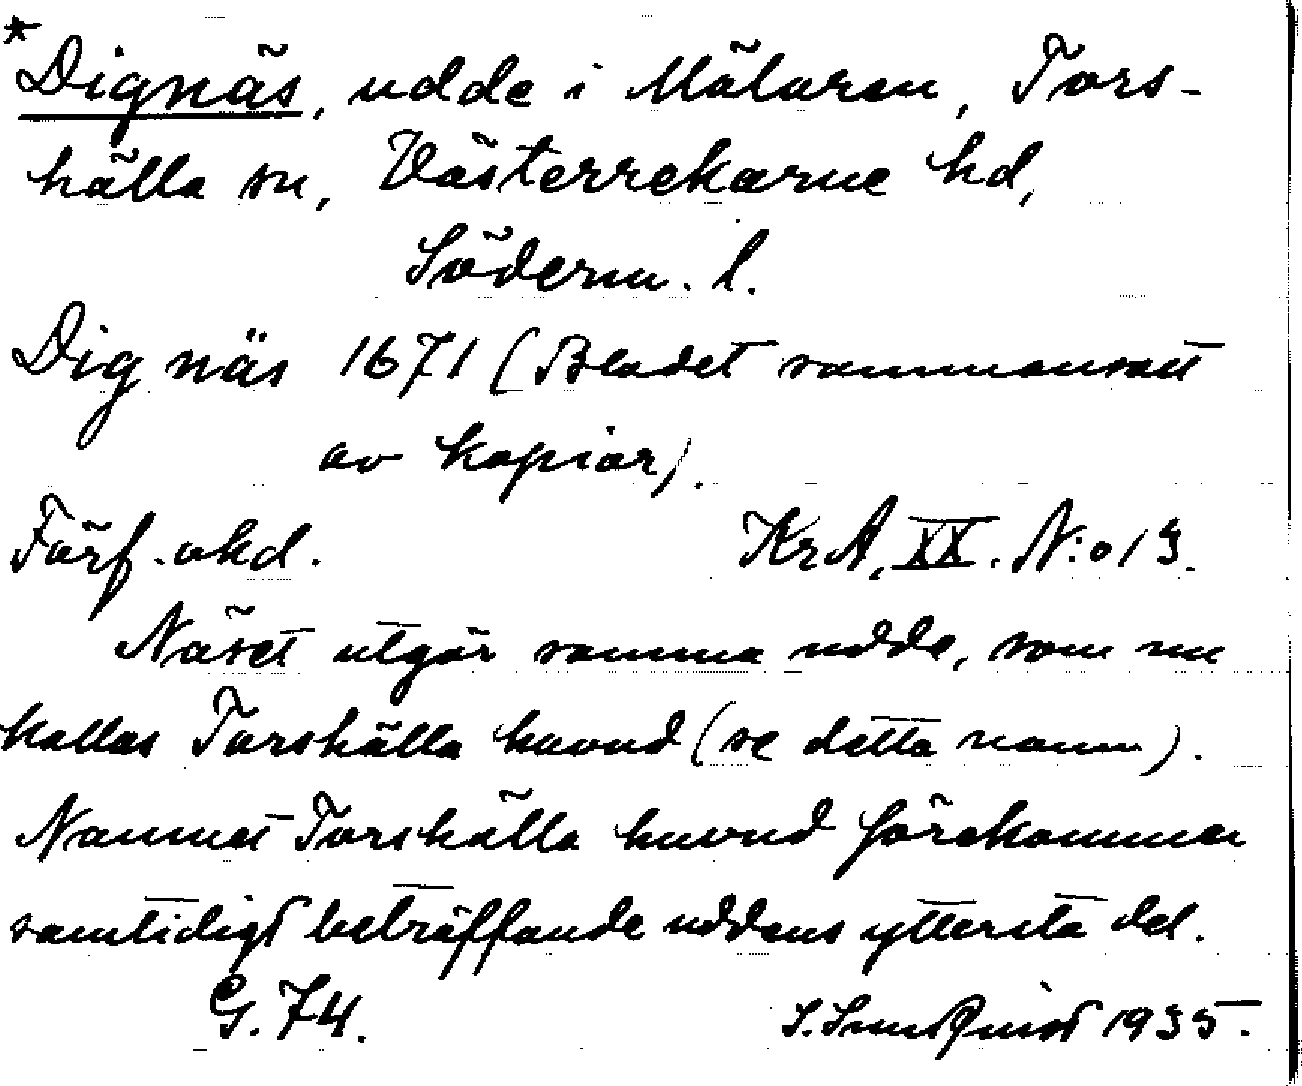 *Dignäs, udde i Mälaren, Tors-
hälla sn, Västerrekarne hd,
Söderm. l.
Dig näs 1671 (Bladet sammansatt
av kopior).
Förf. okd. KrA, XX. N:o 13.
Näset utgör samma udde, som nu
kallas Torshälla huvud (se detta namn).
Namnet Torshälla huvud förekommer
samtidigt beträffande uddens yttersta del.
G. 74. 1935.